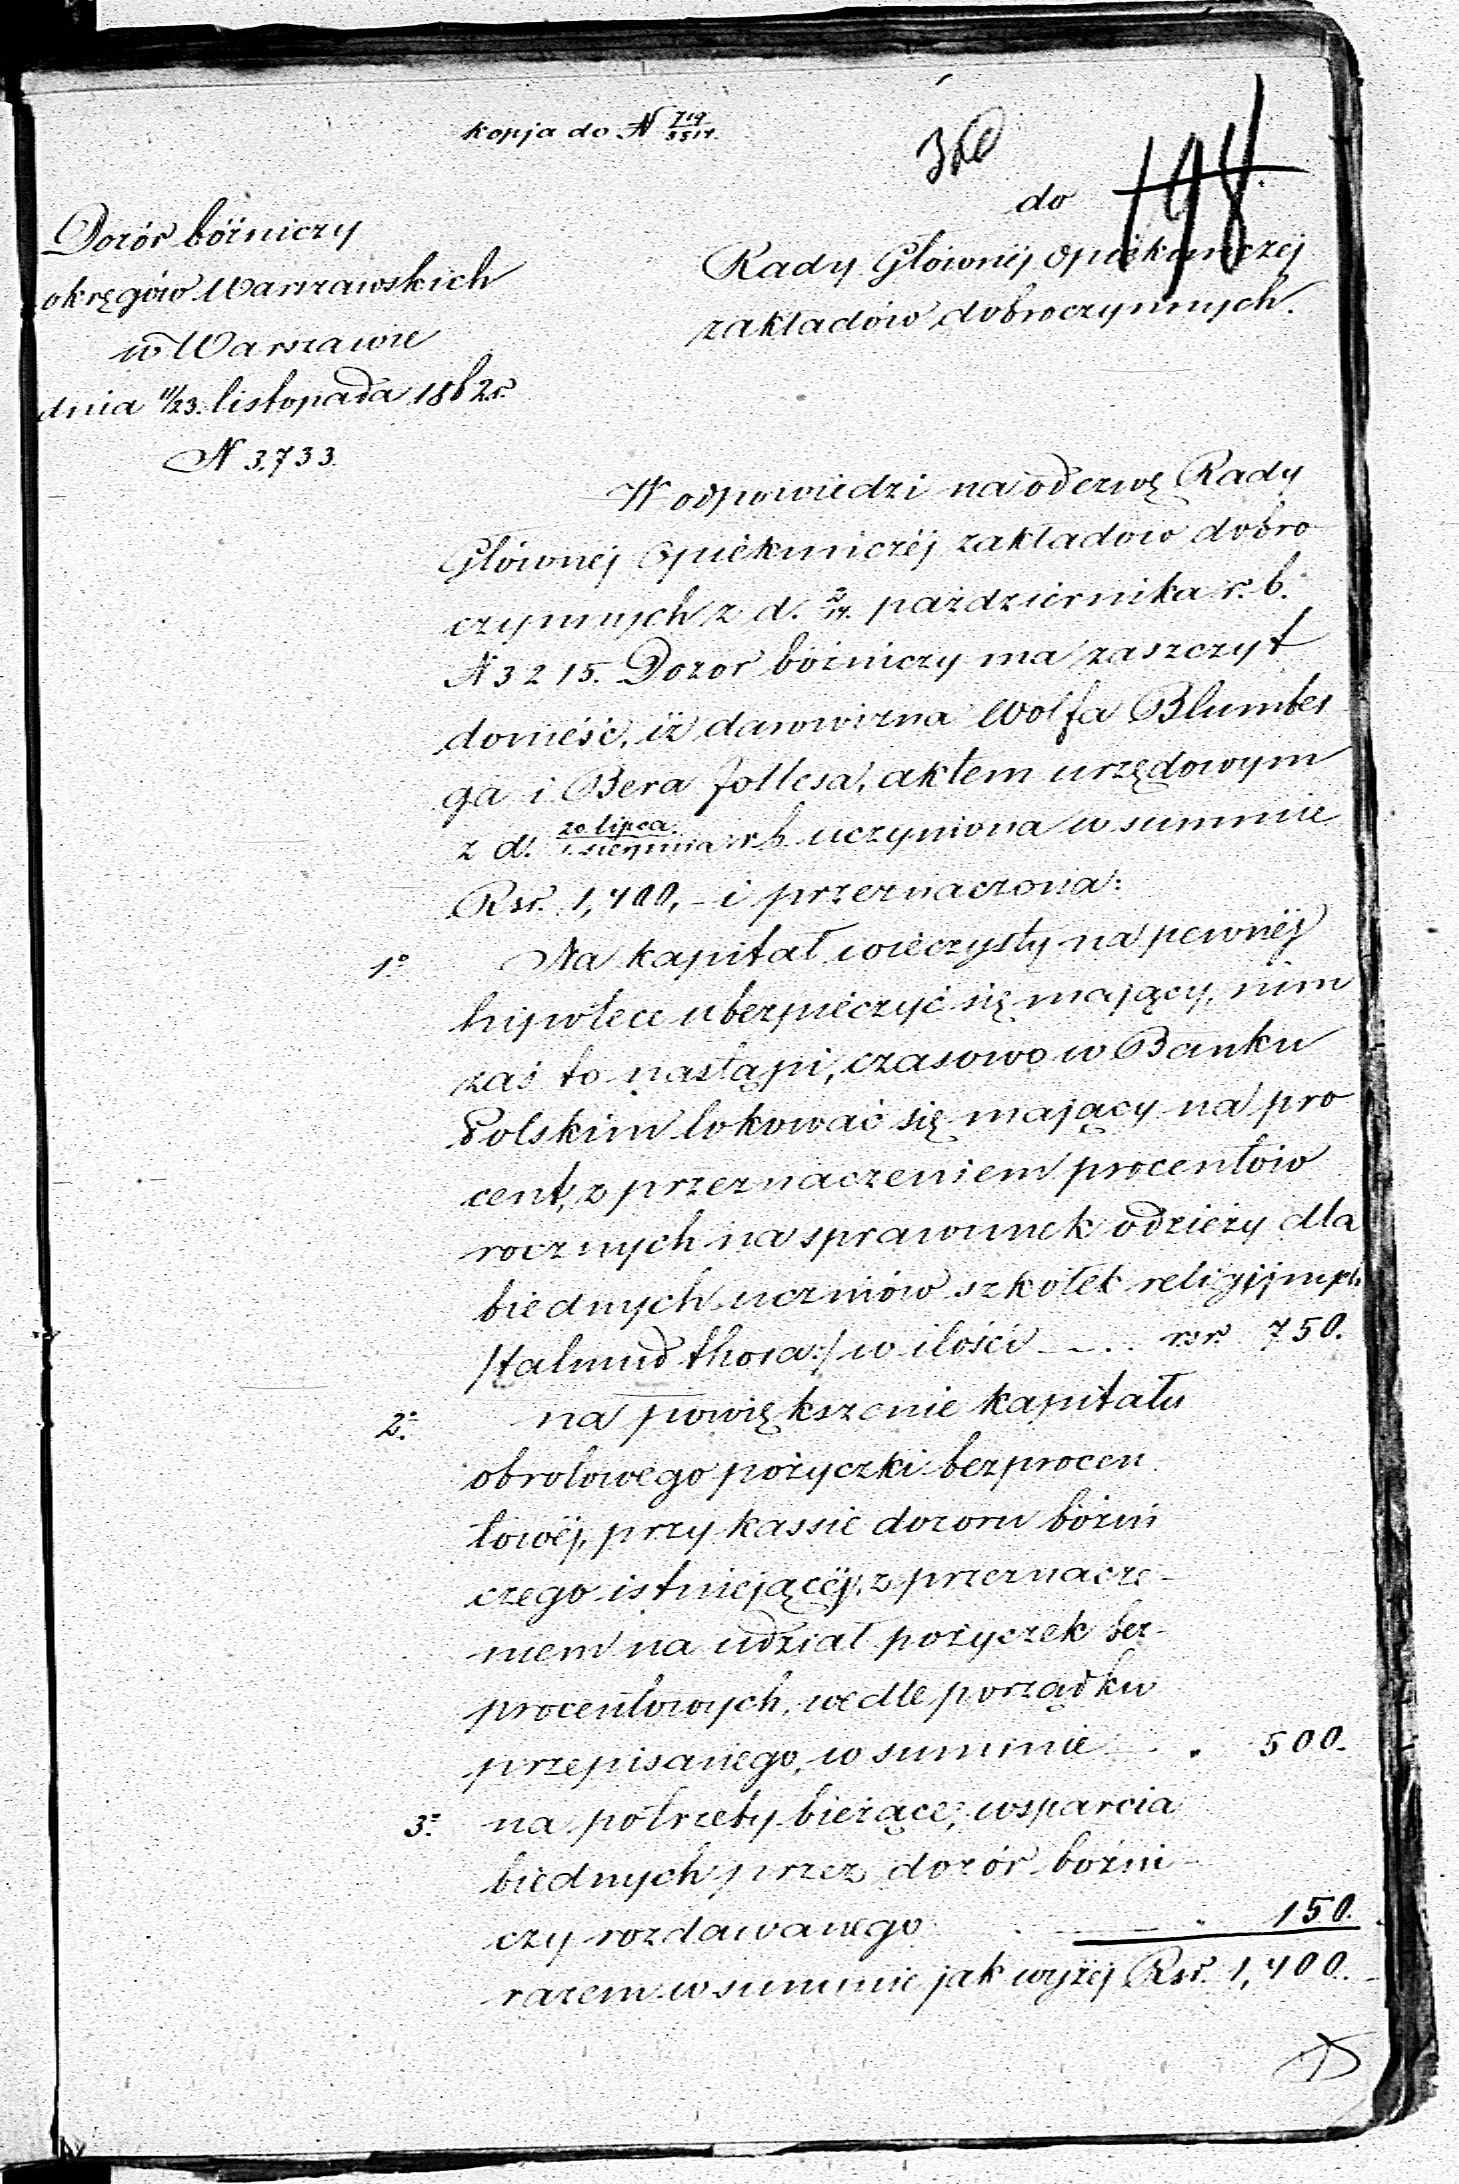 kopja do N 719/5514.
do
198.
Dozór bóźniczy
okręgów Warszawskich
w Warszawie
dnia 11/23. listopada 1862 r.
N 3,733.
Rady Głównéj Opiekuńczej
zakładów dobroczynnych.
W odpowiedzi na odezwę Rady
Głównej Opiekuńczéj zakładow dobro
czynnych z d. 2/14. października r. b.
N 3215. Dozor bóżniczy ma zaszczyt
donieść, iż darowizna Wolfa Blumber
ga i Bera Jollesa, aktem urzędowym
z d. 20 lipca/1 sierpnia r b. uczyniona w summie
Rsr. 1,400,- i przeznaczona:
1° Na kapitał wieczysty na pewnéj
hipotece ubezpieczyć się mający, nim
zaś to nastąpi, czasowo w Banku
Polskim lokować się mający na pro
cent, z przeznaczeniem procentów
rocznych na sprawunek odzieży dla
biednych uczniów szkółek religijnych
/talmud thora:/ w ilości - . . rsr. 750.
2° na powiększenie kapitału
obrotowego pożyczki bezprocen
towéj, przy kassie dozoru bóżni
czego istniejącéj, z przeznacze-
niem na udział pożyczek bez-
procentowych, wedle porządku
przepisanego, w summie . . 500.
3° na potrzeby bieżące, wsparcia
biednych przez dozór bóżni-
czy rozdawanego . - " 150.
razem w summie jak wyżéj Rsr. 1,400.